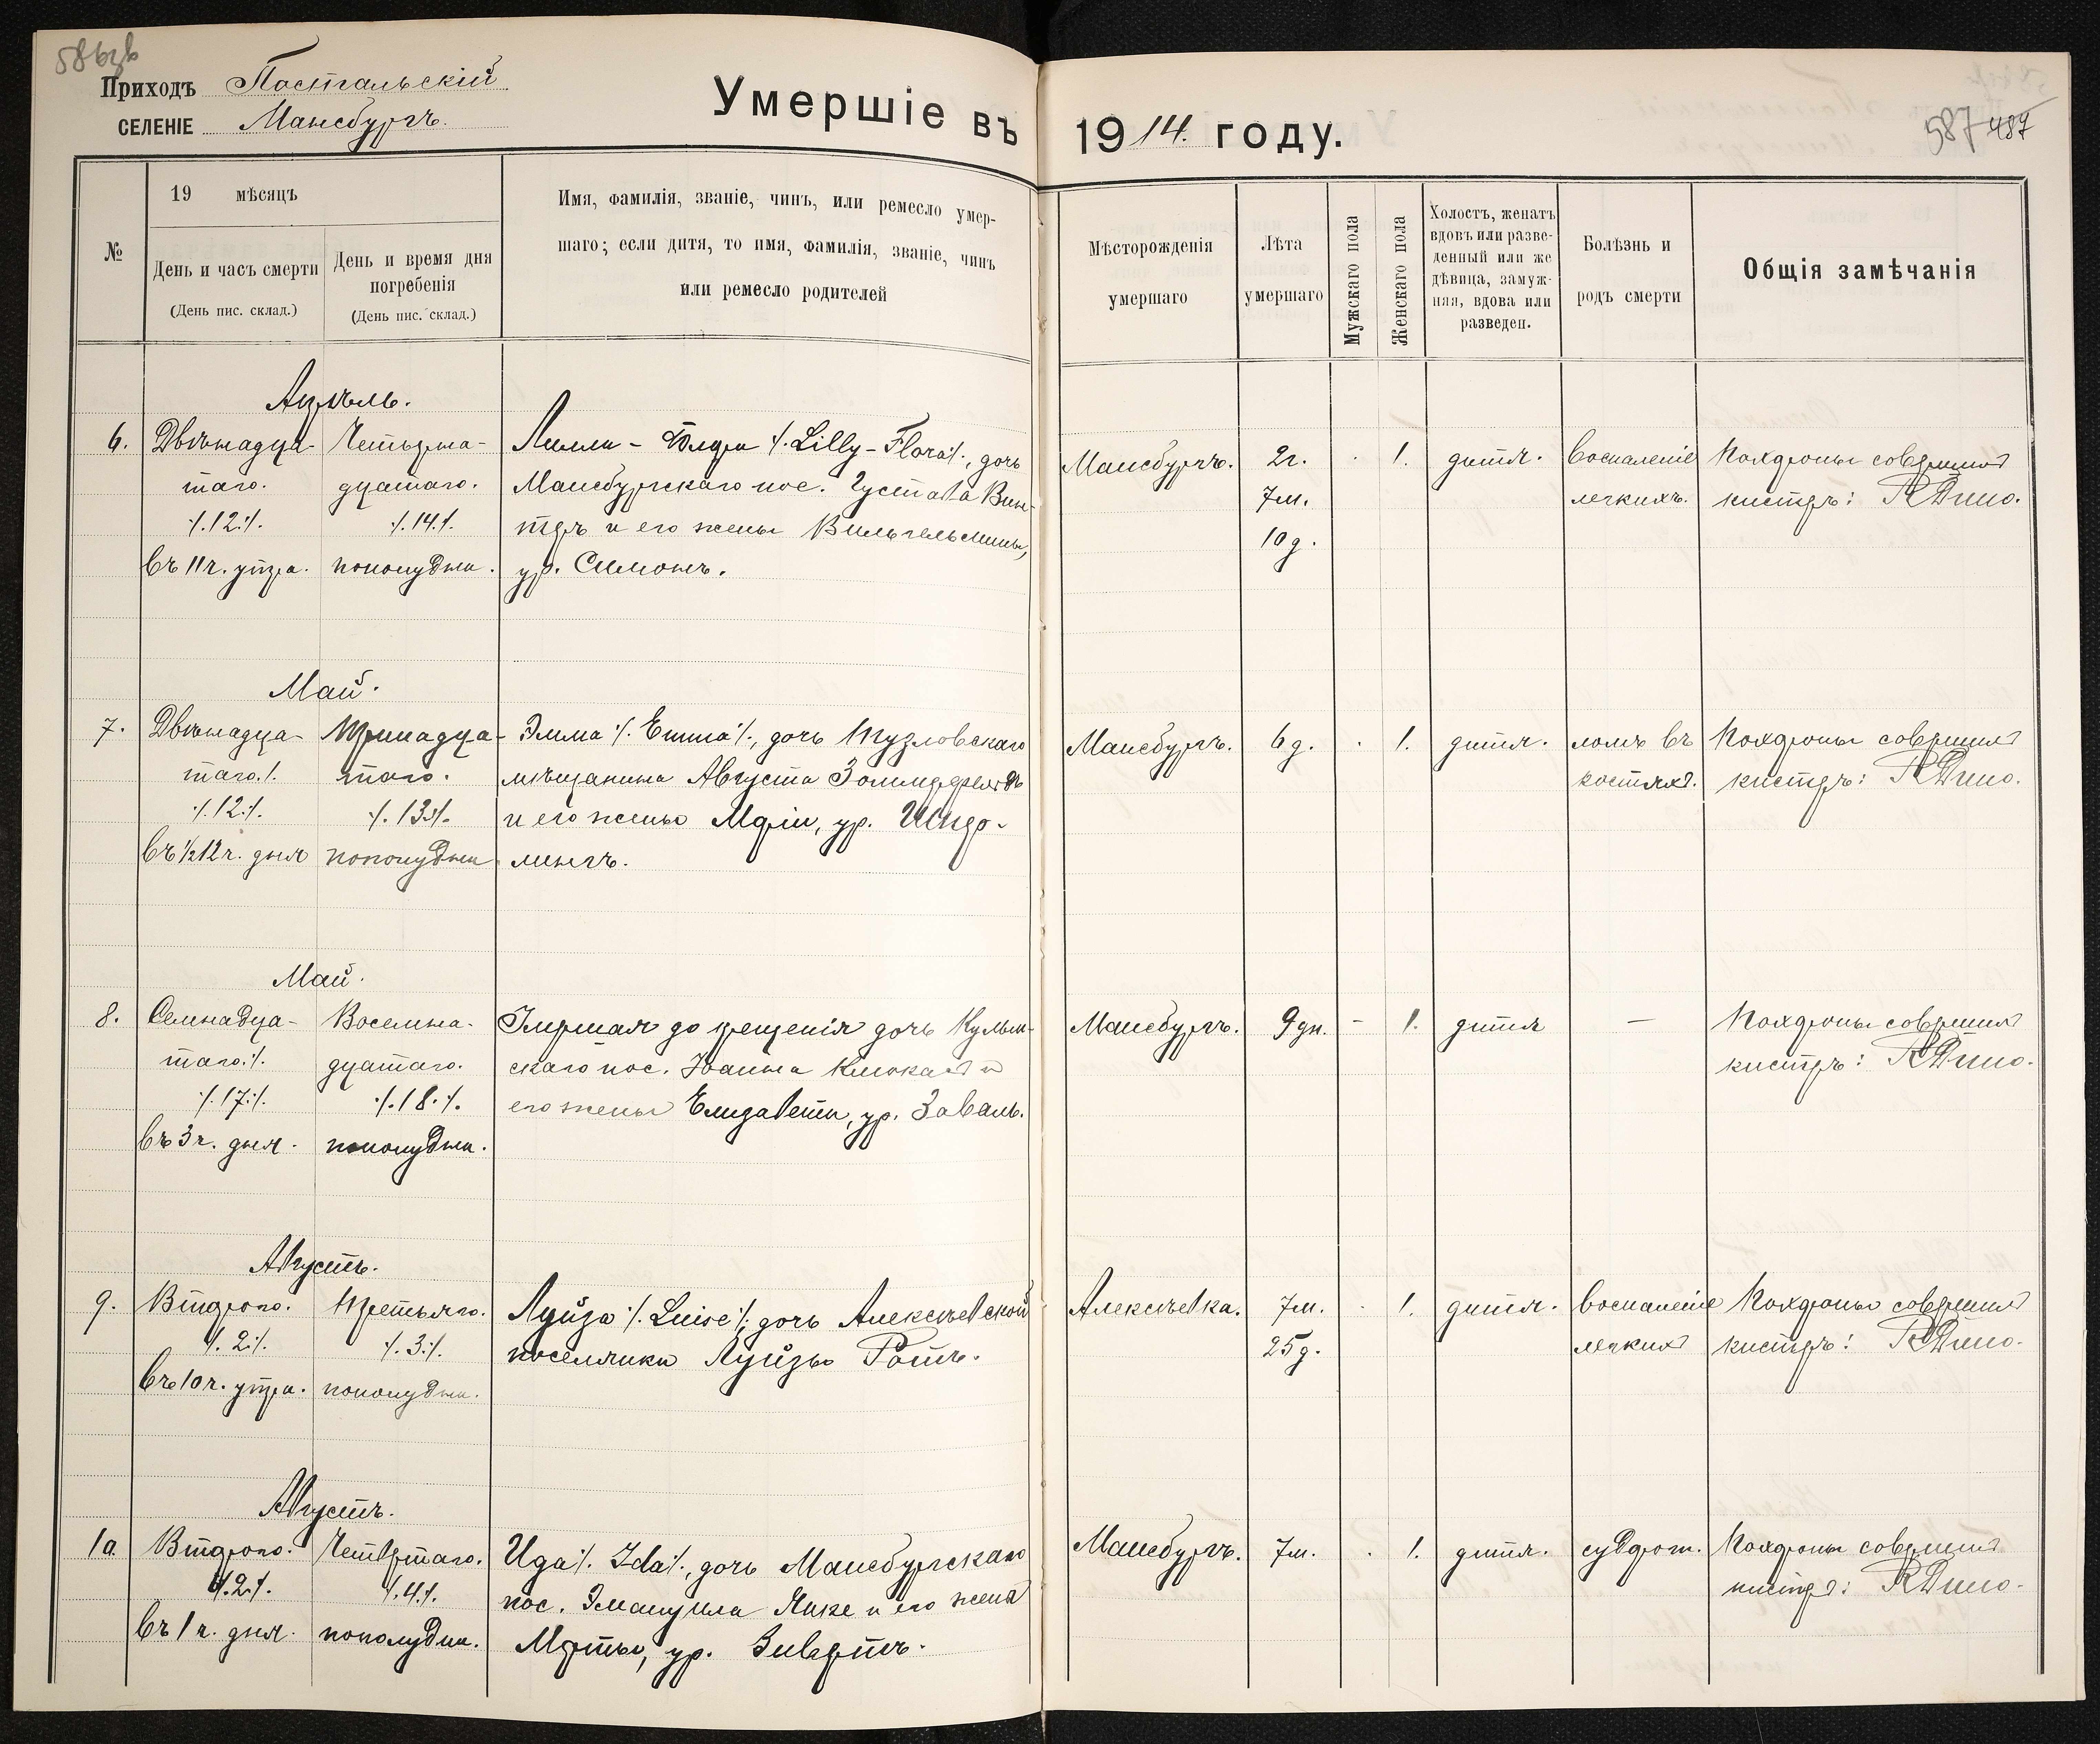 586об
Приходъ Постальскій
СЕЛЕНІЕ Мансбургъ.
Умершіе въ 1914. году.
587 487
№
19 мѣсяцъ
День и часъ смерти
(День пис. склад.)
День и время дня
погребенія
(День пис. склад.)
Имя, фамилія, званіе, чинъ, или ремесло умер-
шаго; если дитя, то имя, фамилія, званіе, чинъ
или ремесло родителей
Мѣсторожденія
умершаго
Лѣта
умершаго
Мужскаго пола
Женскаго пола
Холостъ, женатъ
вдовъ или разве-
денный или же
дѣвица, замуж-
няя, вдова или
разведен.
Болѣзнь и
родъ смерти
Общія замѣчанія
Апрѣль.
6.
Двѣнадца-
таго.
·/.12·/.
въ 11 ч. утра.
Четырна-
дцатаго.
·/.14·/.
пополудни.
Лилли - Флора ·/. Lilly - Flora ·/., дочь
Мансбургскаго пос. Густава Вин-
теръ и его жены Вильгельмины,
ур. Симонъ.
Мансбургъ.
2г.
7м.
10д.
·
1.
дитя.
воспаленіе
легкихъ.
Похороны совершилъ
кистеръ:
Май.
7.
Двѣнадца-
таго ·/.
·/.12·/.
въ ½12 ч. дня
Тринадца-
таго.
·/.13·/.
пополудни
Эмма ·/. Emma ·/., дочь Тузловскаго
мѣщанина Августа Зоммерфельдъ
и его жены Маріи, ур.
лингъ.
Мансбургъ.
6д.
·
1.
дитя.
ломъ въ
костяхъ.
Похороны совершилъ
кистеръ:
Май.
8.
Семнадца-
таго ·/.
·/.17·/.
въ 3 ч. дня.
Восемна-
дцатаго.
·/.18·/.
пополудни.
Умершая до крещенія дочь Кульм-
скаго пос. Іоанна и
его жены Елизаветы, ур. Заваль.
Мансбургъ.
9дн.
-
1.
дитя
—
Похороны совершилъ
кистеръ:
Августъ.
9.
Второго.
·/.2·/.
въ 10 ч. утра.
Третьяго.
·/.3·/.
пополудни.
Луиза ·/. Luise ·/., дочь Алексѣевской
поселянки Луизы Ротъ.
Алексѣевка.
7м.
25д.
·
1.
дитя.
воспаленіе
легкихъ
Похороны совершилъ
кистеръ:
Августъ.
10.
Второго.
·/.2·/.
въ 1 ч. дня.
Четвертаго.
·/.4·/.
пополудни.
Ида ·/. Ida ·/., дочь Мансбургскаго
пос. Эмануила Янке и его жены
Марты, ур. Зивертъ.
Мансбургъ.
7м.
·
1.
дитя.
судорог.
Похороны совершилъ
кистеръ: